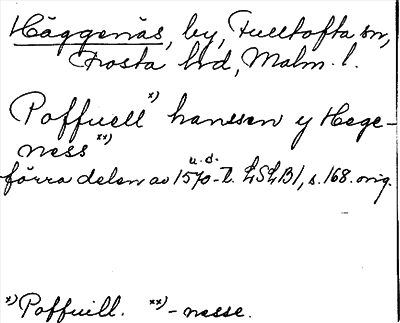 Häggenäs, by, Fulltofta sn,
Frosta hrd, Malm. l.
Poffuell x) hanssen y Hege-
ness xx)
u. d.
förra delen av 1570-t. LSLB1, s. 168. orig.
x) Poffuill. xx) -nesse.